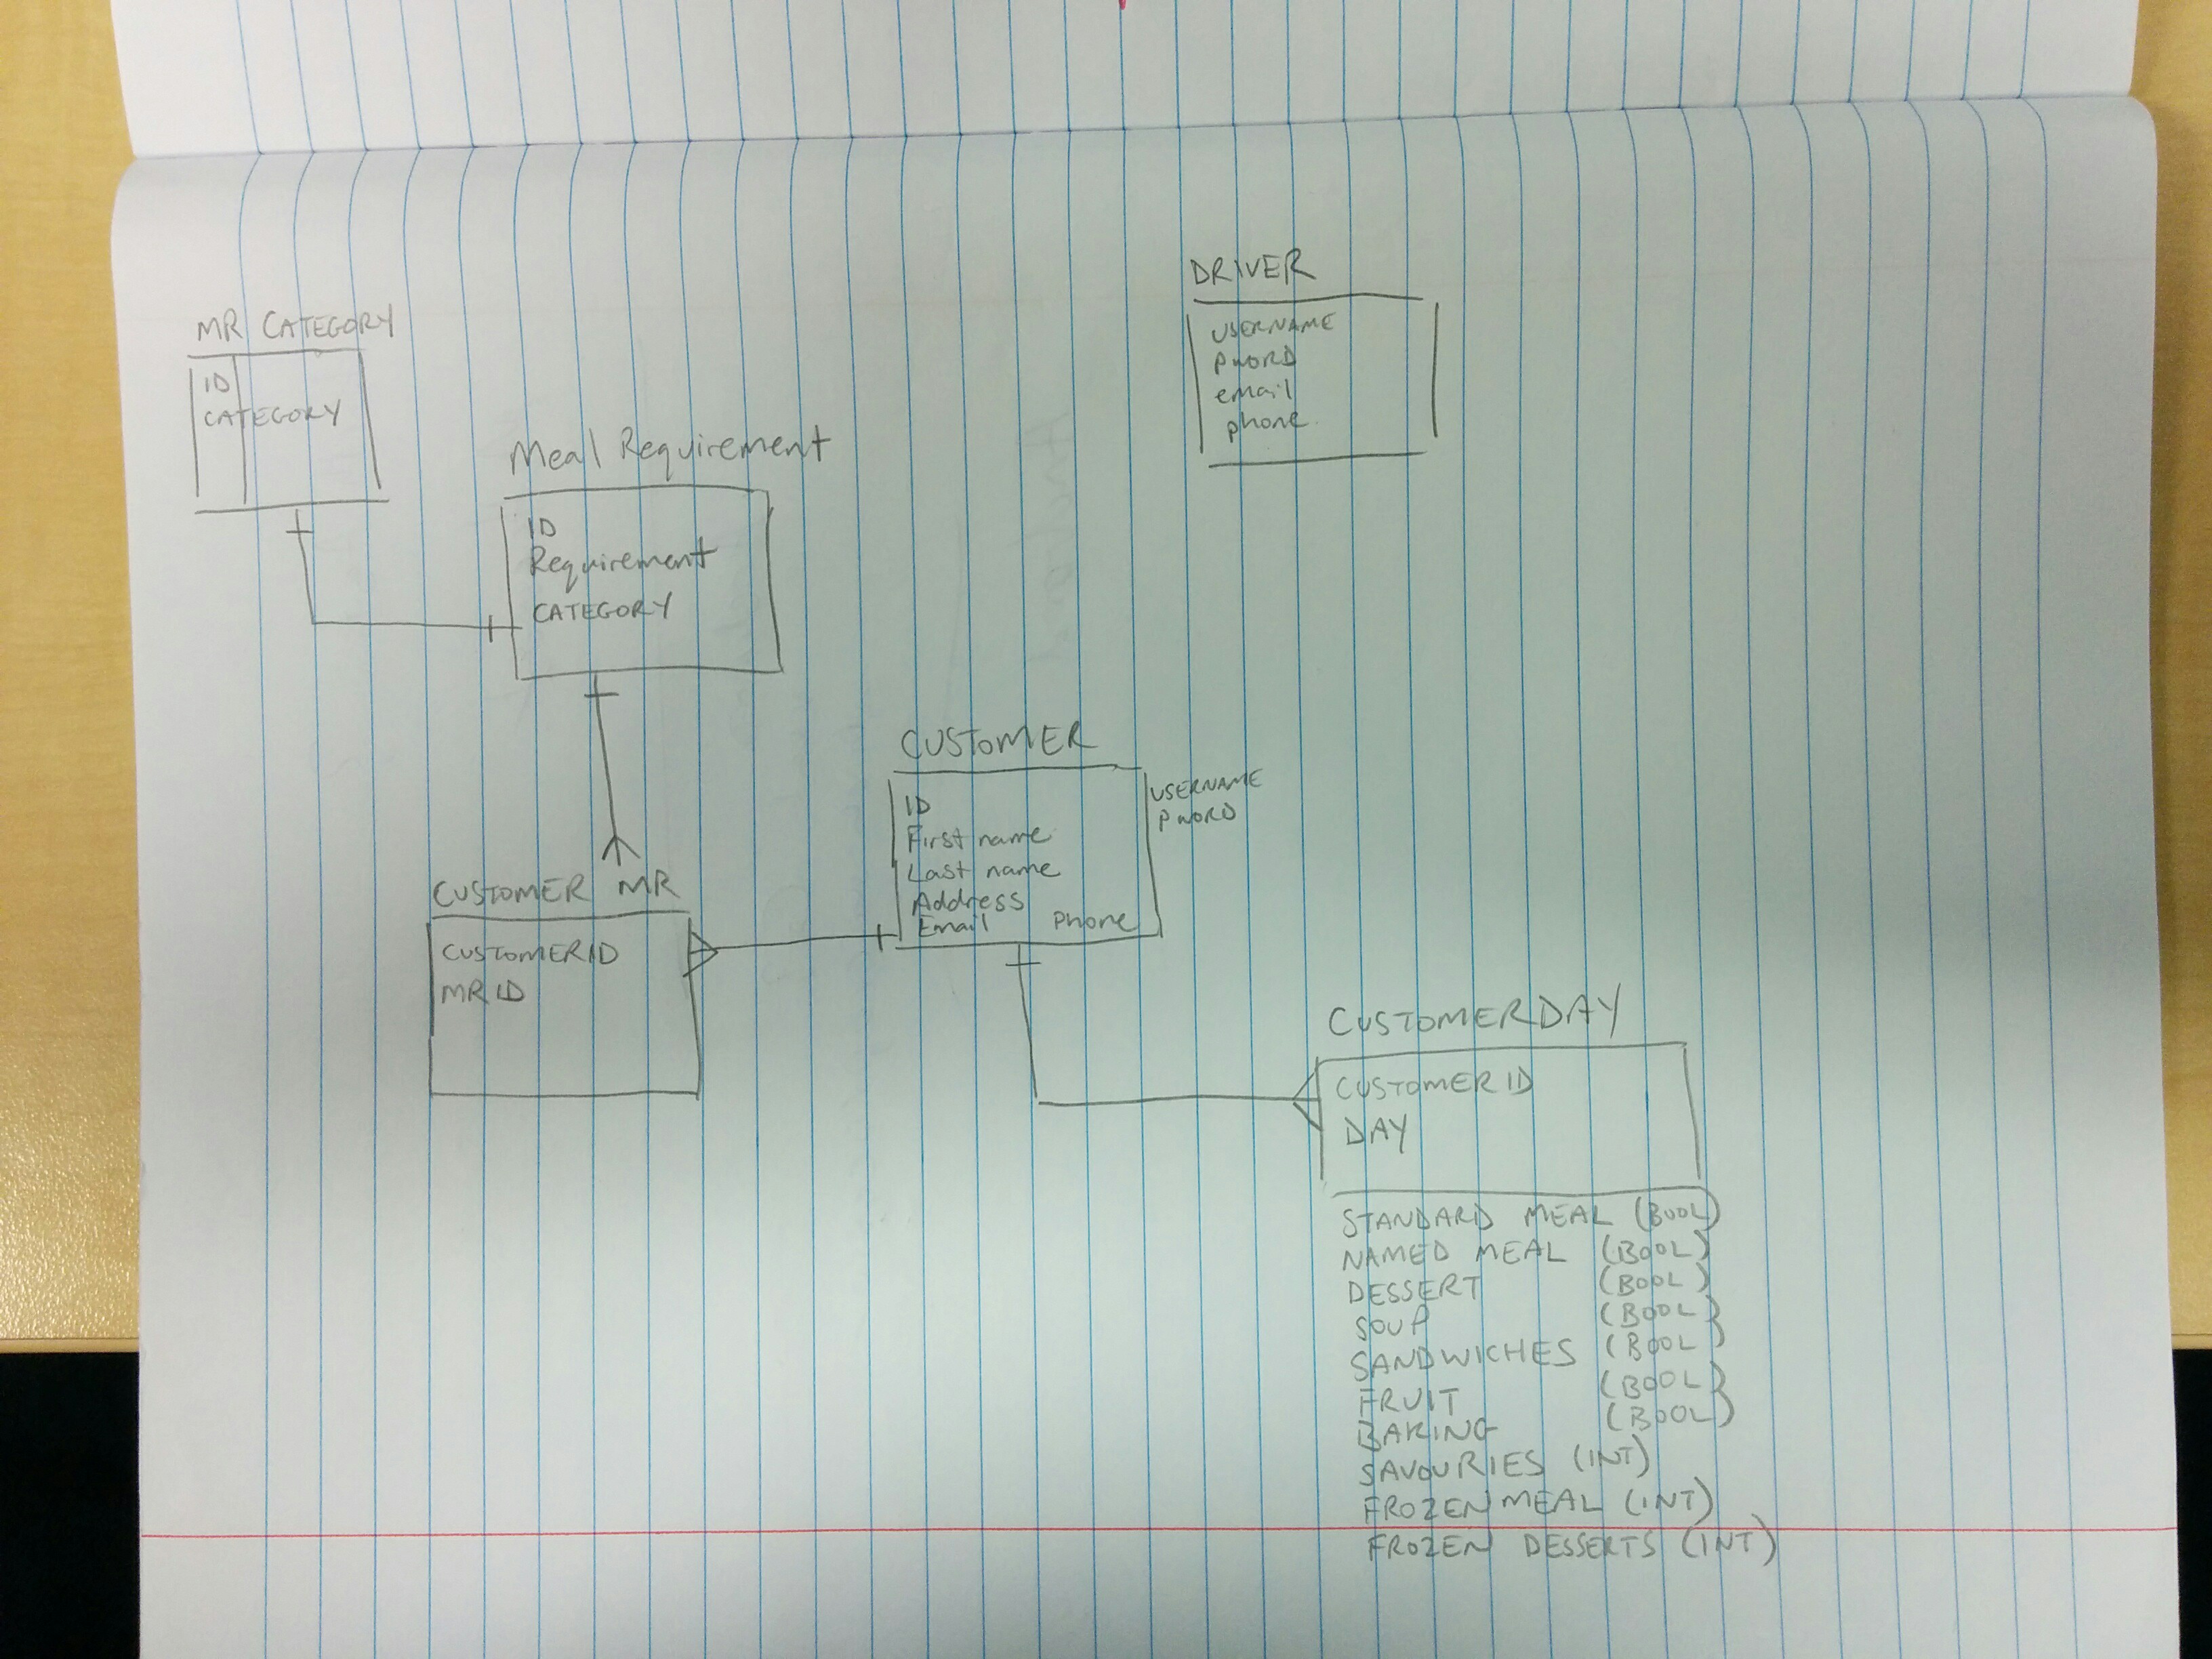 DRIVER
USERNAME
PWORD
email
phone
MR CATEGORY
ID
CATEGORY
Meal Requirement
ID
Requirement
CATEGORY
CUSTOMER
ID
First name
Last name
Address
Email Phone
USERNAME
PWORD
CUSTOMER MR
CUSTOMERID
MR ID
CUSTOMERDAY
CUSTOMER ID
DAY
STANDARD MEAL (BOOL)
NAMED MEAL (BOOL)
DESSERT (BOOL)
SOUP (BOOL)
SANDWICHES (BOOL)
FRUIT (BOOL)
BAKING (BOOL)
SAVOURIES (INT)
FROZEN MEAL (INT)
FROZEN DESSERTS (INT)